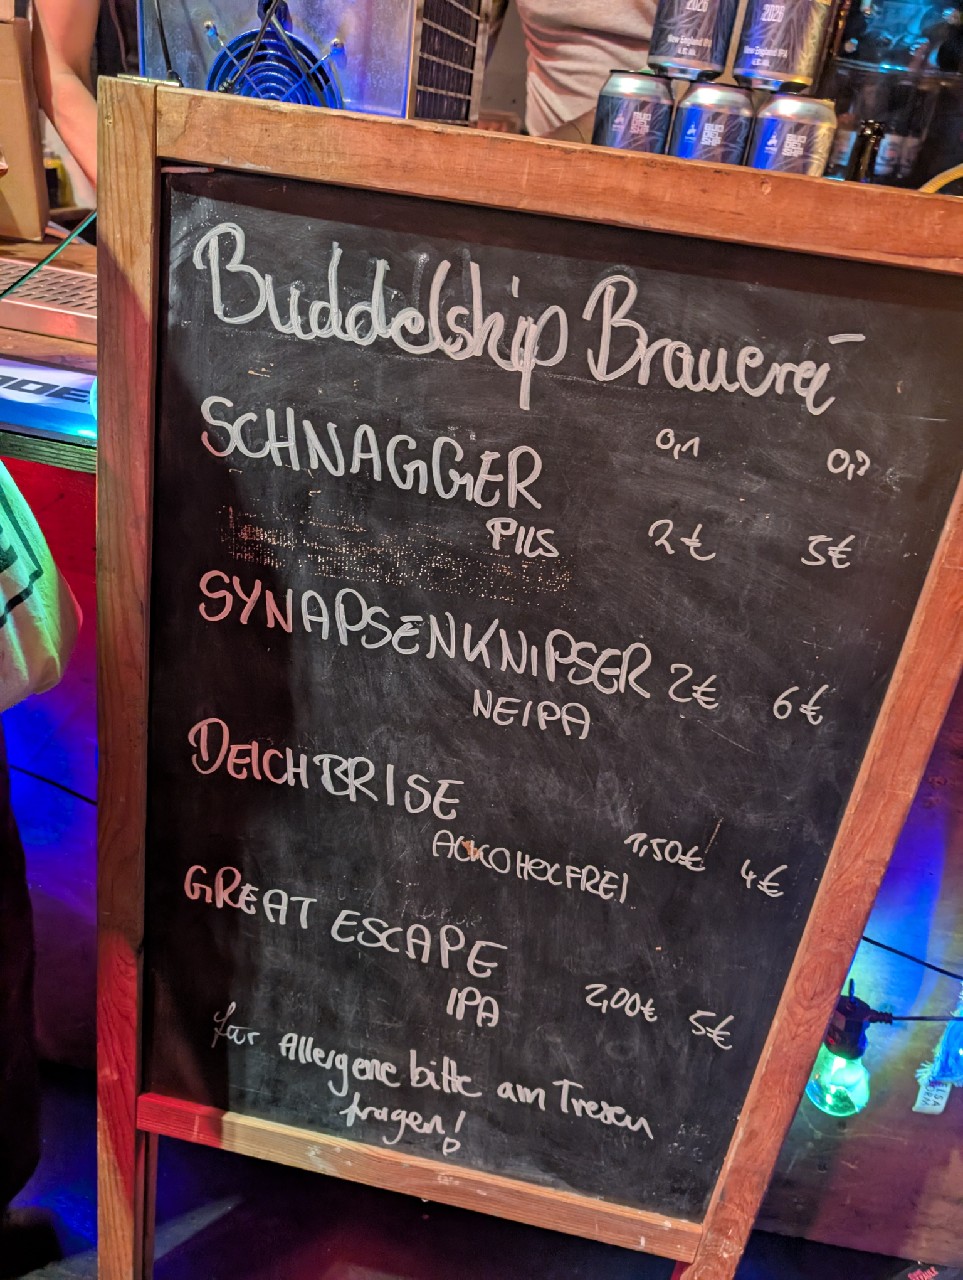 2026
New England IPA
2026
New England IPA
Buddelship Brauerei
0,1 0,3
SCHNAGGER
PILS 2€ 5€
SYNAPSENKNIPSER 2€ 6€
NEIPA
DEICHBRISE
ALKOHOLFREI 1,50€ 4€
GREAT ESCAPE
IPA 2,00€ 5€
für Allergene bitte am Tresen
fragen!